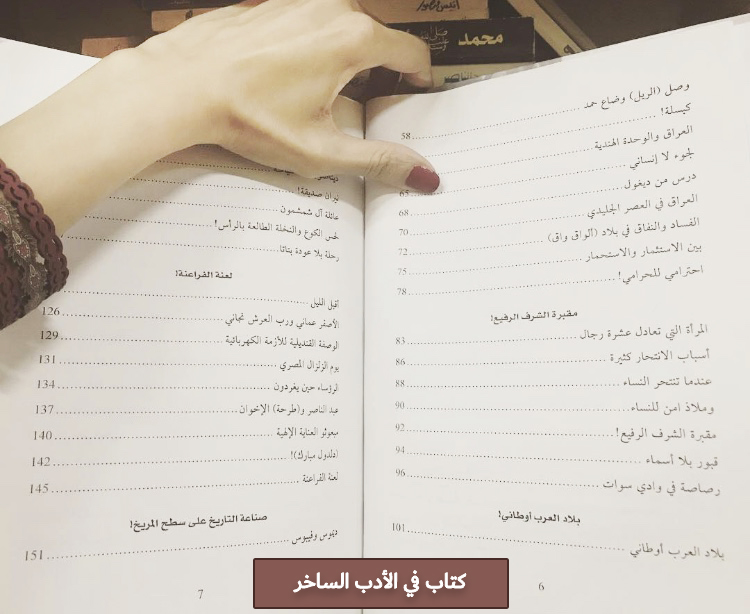 محمد
وصل (الريل) وضاع حمد
كيسلة! 58
العراق والوحدة الهندية
لجوء لا إنساني 65
درس من ديغول 68
العراق في العصر الجليدي 70
الفساد والنفاق في بلاد (الواق واق) 72
بين الاستثمار والاستحمار 75
احترامي للحرامي! 78
مقبرة الشرف الرفيع!
المرأة التي تعادل عشرة رجال 83
أسباب الانتحار كثيرة 86
عندما تنتحر النساء 88
وملاذ امن للنساء 90
مقبرة الشرف الرفيع! 92
قبور بلا أسماء 94
رصاصة في وادي سوات 96
بلاد العرب أوطاني!
بلاد العرب أوطاني 101
6
نيران صديقة!
عائلة آل شمشمون
لحس الكوع والنخلة الطالعة بالرأس!
رحلة بلا عودة بتاتا
لعنة الفراعنة!
أقبل الليل
الأصفر عماني ورب العرش نجاني 126
الوصفة القنديلية للأزمة الكهربائية 129
يوم الزلزال المصري 131
الرؤساء حين يغردون 134
عبد الناصر و(طرحة) الإخوان 137
مبعوثو العناية الإلهية 140
(دلدول مبارك)! 142
لعنة الفراعنة 145
صناعة التاريخ على سطح المريخ!
ديموس وفيبوس 151
7
كتاب في الأدب الساخر